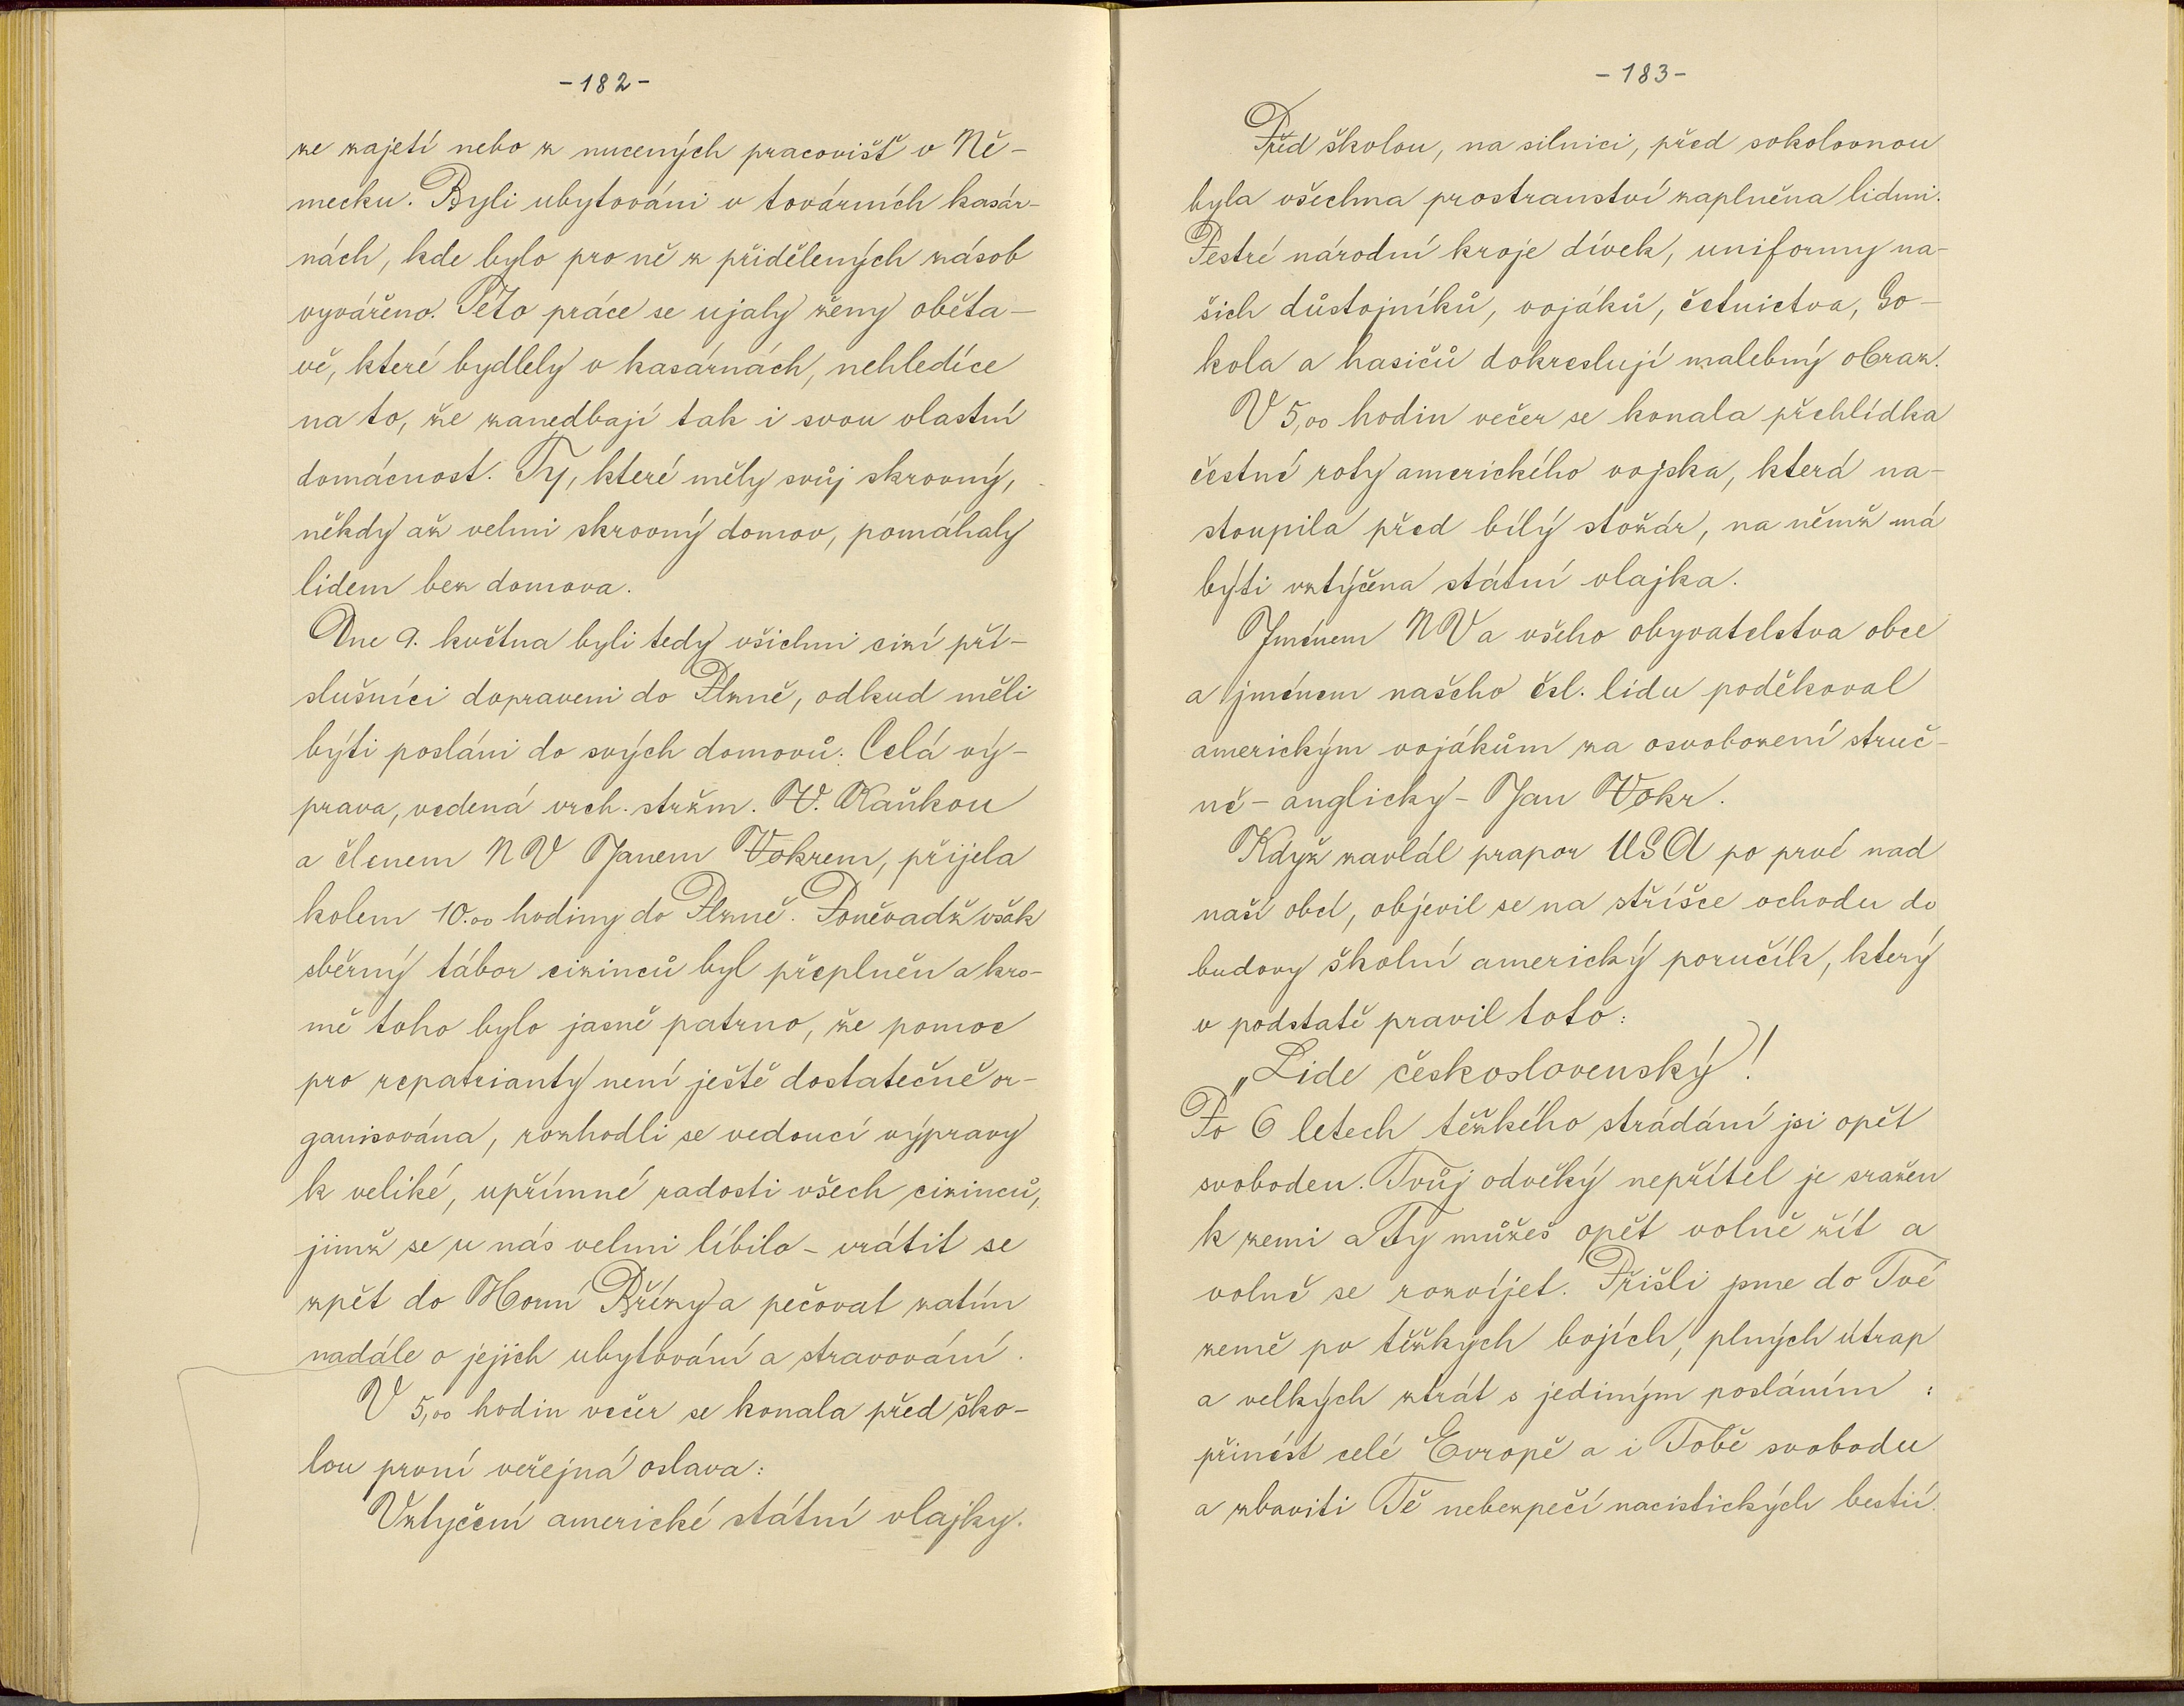 -182-
ze zajetí nebo z nucených pracovišť v Ně-
mecku. Byli ubytováni v továrních kasár-
nách, kde bylo pro ně z přidělených zásob
vyvářeno. Této práce se ujaly ženy oběta-
vě, které bydlely v kasárnách, nehledíce
na to, že zanedbají tak i svou vlastní
domácnost. Ty, které měly svůj skrovný,
někdy až velmi skrovný domov, pomáhaly
lidem bez domova.
Dne 9. května byli tedy všichni cizí pří-
slušníci dopraveni do Plzně, odkud měli
býti posláni do svých domovů. Celá vý-
prava, vedená vrch. stržm. V. Kaňkou
a členem NV Janem Vokrem, přijela
kolem 10.00 hodiny do Plzně. Poněvadž však
sběrný tábor cizinců byl přeplněn a kro-
mě toho bylo jasně patrno, že pomoc
pro repatrianty není ještě dostatečně or-
ganisována, rozhodli se vedoucí výpravy
k veliké, upřímné radosti všech cizinců,
jimž se u nás velmi líbilo - vrátit se
zpět do Horní Břízy a pečovat zatím
nadále o jejich ubytování a stravování.
V 5,00 hodin večer se konala před ško-
lou první veřejná oslava:
Vztyčení americké státní vlajky.
-183-
Před školou, na silnici, před sokolovnou
byla všechna prostranství zaplněna lidmi.
Pestré národní kroje dívek, uniformy na-
šich důstojníků, vojáků, četnictva, So-
kola a hasičů dokreslují malebný obraz.
V 5,00 hodin večer se konala přehlídka
čestné roty amerického vojska, která na-
stoupila před bílý stožár, na němž má
býti vztýčena státní vlajka.
Jménem NV a všeho obyvatelstva obce
a jménem našeho čsl. lidu poděkoval
americkým vojákům za osvobození struč-
ně - anglicky - Jan Vokr.
Když zavlál prapor USA po prvé nad
naší obcí, objevil se na stříšce vchodu do
budovy školní americký poručík, který
v podstatě pravil toto:
„Lide československý!
Po 6 letech těžkého strádání jsi opět
svoboden. Tvůj odvěký nepřítel je sražen
k zemi a Ty můžeš opět volně žít a
volně se rozvíjet. Přišli jsme do Tvé
země po těžkých bojích, plných útrap
a velkých ztrát s jediným posláním :
přinést celé Evropě a i Tobě svobodu
a zbaviti Tě nebezpečí nacistických bestií.